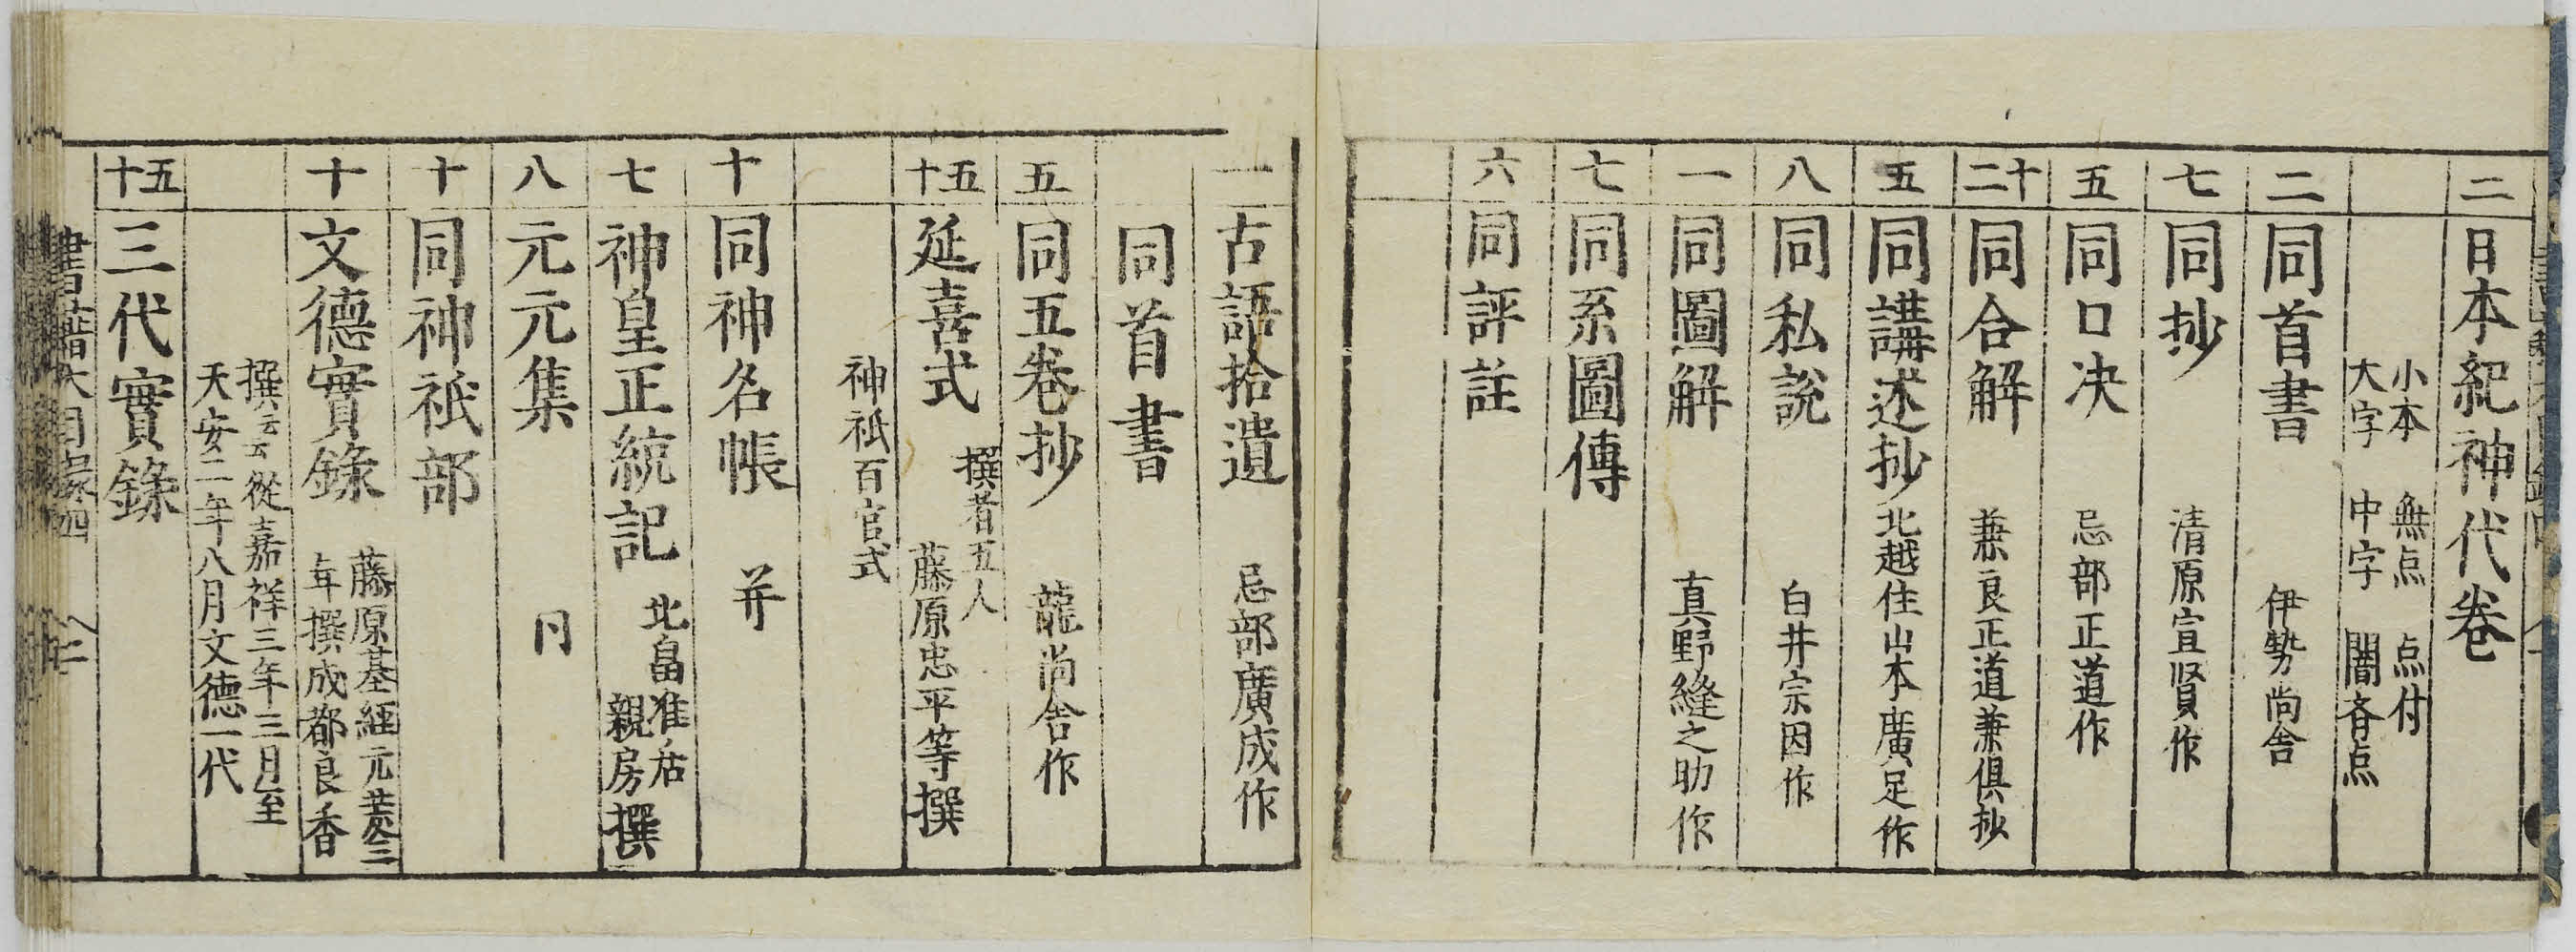 二 日本紀神代卷
小本 無点 点付
大字 中字 闇斉点
二 同首書 伊勢尚舎
七 同抄 清原宣賢作
五 同口决 忌部正道作
二十 同合解 兼良正道兼倶抄
五 同講述抄 北越住山本廣足作
八 同私説 白井宗因作
一 同圖解 真野縫之助作
七 同系圖傳
六 同評註
一 古語拾遺 忌部廣成作
同首書
五 同五卷抄 龍尚舎作
五十 延喜式 撰者五人
藤原忠平等撰
神祇百官式
十 同神名帳 并
七 神皇正統記 北畠准后
親房撰
八 元元集 同
十 同神祇部
十 文德實錄 藤原基經元慶三
年撰成都良香
撰云云從嘉祥三年三月至
天安二年八月文德一代
五十 三代實錄
書籍大目録四